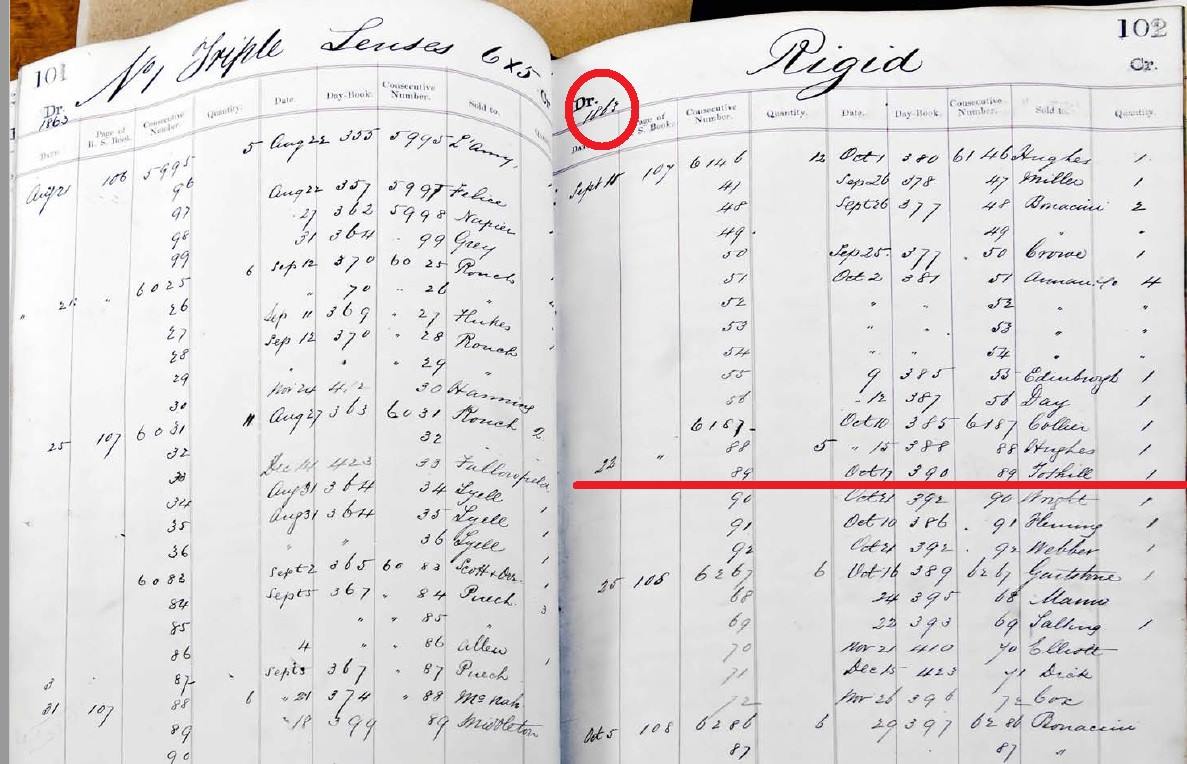 101
No 1 Triple Lenses 6x5
Dr.
1863
Date. Page of B. S. Book. Consecutive Number. Quantity. Date. Day-Book. Consecutive Number. Sold to.
Aug 21 106 5995 5 Aug 22 355 5995 L'Amy
96 Aug 22 357 5997 Felice
97 27 362 5998 Napier
98 31 364 " 99 Grey
99 6 Sep 12 370 60 25 Rouch
" 21 " 6025 " 70 " 26 "
26 Sep 11 369 " 27 Hukes
27 Sep 12 370 " 28 Rouch
28 " " 29 "
29 Nov 24 412 30 Hanning
30 Aug 27 363 6031 Rouch 2
25 107 6031 32 "
32 Dec 14 423 33 Fallowfield
33 Aug 31 364 34 Lyell 1
34 Aug 31 364 35 Lyell 1
35 " " 36 Lyell 1
36 Sept 2 365 60 83 Scott
6082 Sept 5 367 " 84 Puech 3
84 " " 85 "
85 4 " " 86 Allen
86 Sept 5 367 " 87 Puech 1
87 6 " 21 374 " 88 McNab
31 107 88 "18 399 89 Middleton
89
90
102
Rigid
Dr. Cr.
Page of S. Book. Consecutive Number. Quantity. Date. Day-Book. Consecutive Number. Sold to. Quantity.
Sept 15 107 6146 12 Oct 1 380 6146 Hughes 1
47 Sep 26 378 47 Miller 1
48 Sept 26 377 48 Bonacini 2
49 49 " "
50 Sep 25 377 50 Crowe 1
51 Oct 2 381 51 4
52 " " 52 " "
53 " " 53 " "
54 " " 54 " "
55 9 385 55 Edinburgh 1
56 " 12 387 56 Day 1
6187 Oct 10 385 6187 Collier 1
22 " 88 5 " 15 388 88 Hughes 1
89 Oct 17 390 89 1
90 Oct 21 392 90 Wright 1
91 Oct 10 386 91 Fleming 1
92 Oct 21 392 92 Webber 1
25 108 6267 6 Oct 16 389 6267 1
68 24 395 68 Mann
69 22 393 69 1
70 Nov 21 410 70 Elliott
71 Dec 15 423 71 Dick
72 Nov 26 396 72 Cox
Oct 5 108 6286 6 29 397 6286 Bonacini
87 87 "